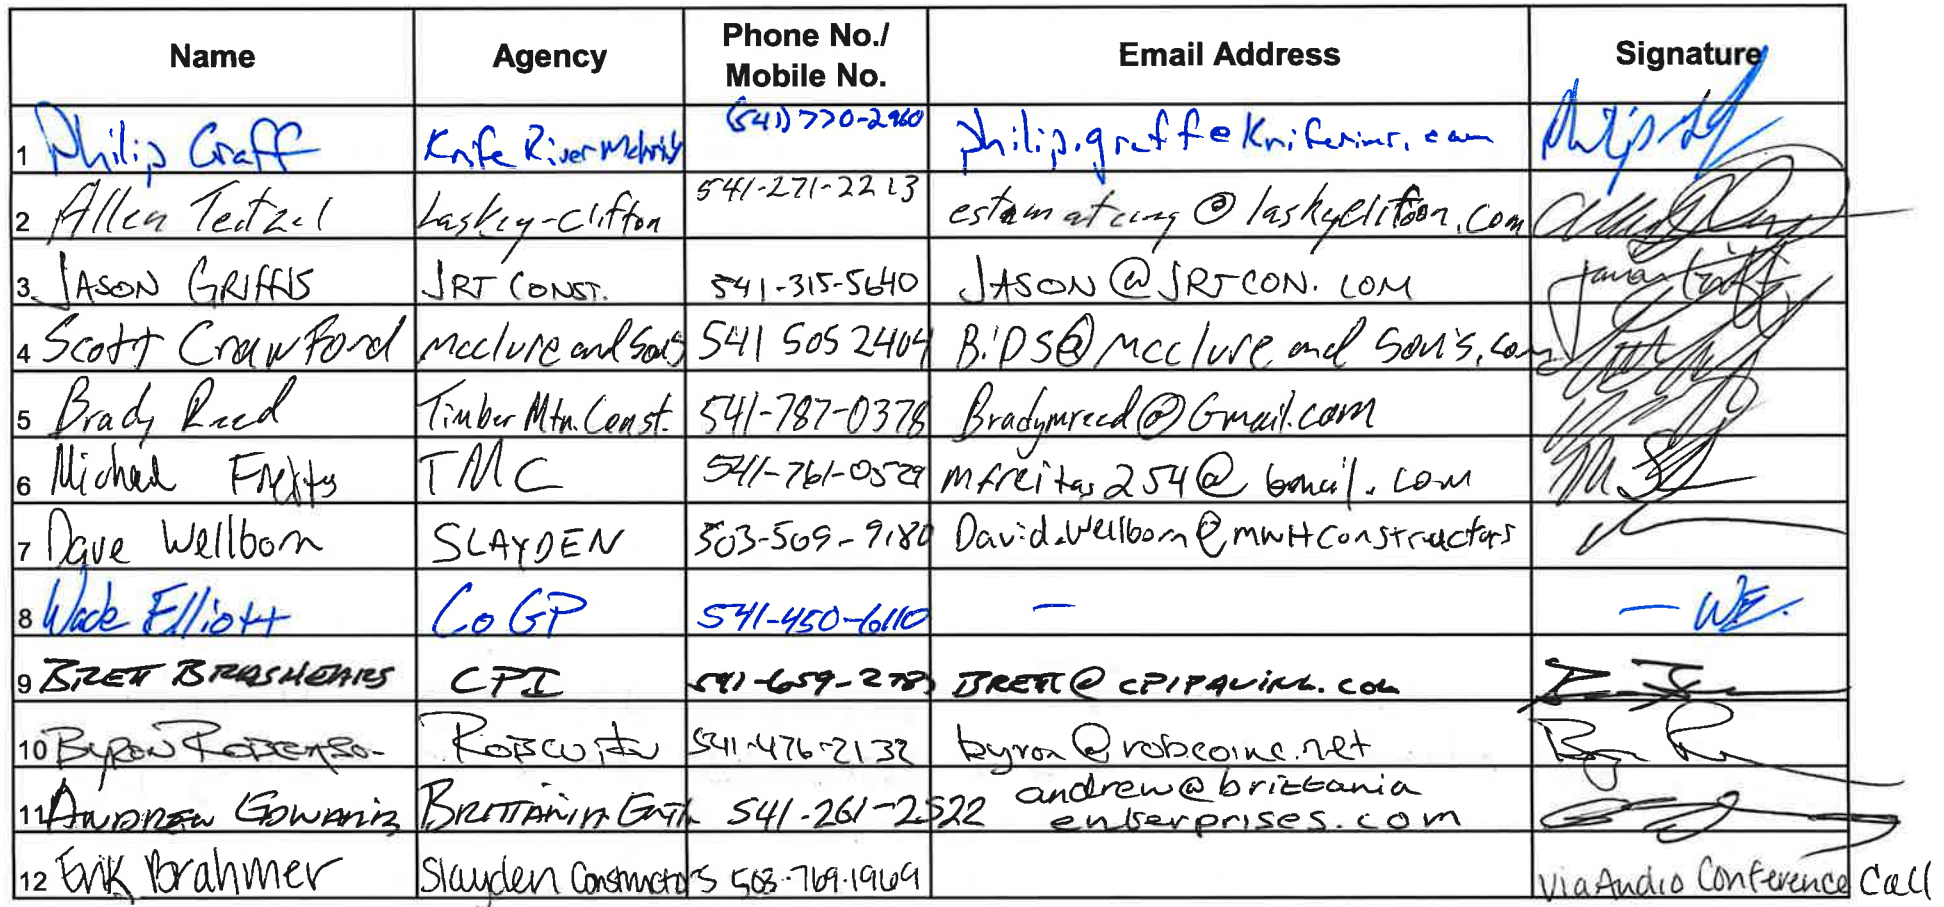 Name Agency Phone No./ Mobile No. Email Address Signature
1 Philip Graff Knife River (541) 770-2960 philip.graff@kniferiver.com
2 Allen Teitzel Laskey-Clifton 541-271-2213 @laskeyclifton.com
3 JASON GRIFFIS JRT CONST. 541-315-5640 JASON@JRTCON.COM
4 Scott Crawford McClure and Sons 541 505 2404 BIDS@McClure and Sons.com
5 Brady Reed Timber Mtn. Const. 541-787-0378 Bradymreed@Gmail.com
6 Michael Freitas TMC 541-761-0529 mfreitas254@Gmail.com
7 Dave Wellborn SLAYDEN 503-509-9180 David.Wellborn@MWHConstructors
8 Wade Elliott CoGP 541-450-6110 — — WE.
9 BRETT BRASHEARS CPI 541-659-278 BRETT@CPIPAVING.COM
10 BYRON ROBERSON 541-476-2132 byron@robcoinc.net
11 ANDREW EDWARDS BRITTANIA 541-261-2522 andrew@brittania enterprises.com
12 Erik Brahmer Slayden Constructors 503-769-1969 Via Audio Conference Call